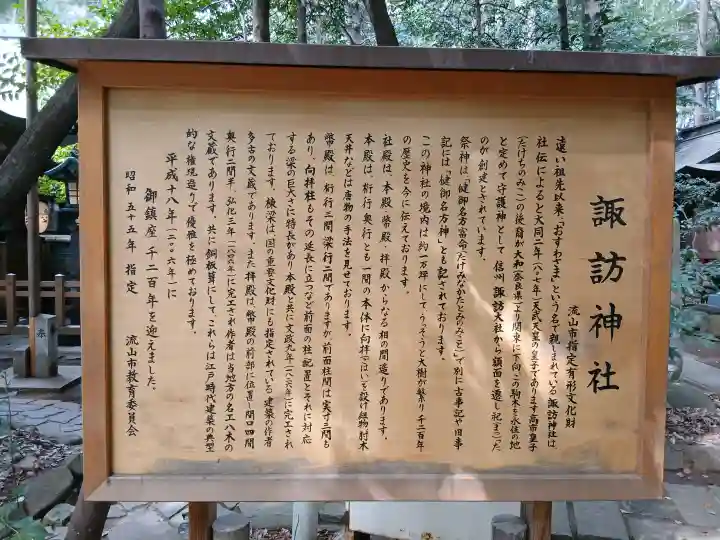 諏訪神社
流山市指定有形文化財
遠い祖先以来、「おすわさま」という名で親しまれている諏訪神社は、
社伝によると大同二年(八〇七年)天武天皇の皇子であります高市皇子
(たけちのみこ)の後裔が大和(奈良県)より関東に下向、この駒木を永住の地
と定めて守護神として、信州諏訪大社から御霊を遷し祀(まつ)った
のが創建とされています。
祭神は「健御名方富命(たけみなかたとみのみこと)」で別に古事記や旧事
記には「健御名方神」とも記されております。
この神社の境内は約一万坪にして、うっそうと大樹が繁り千二百年
の歴史を今に伝えております。
社殿は、本殿、幣殿、拝殿からなる相の間造りであります。
本殿は、桁行奥行とも一間の本体に向拝(こはい)を設け組物肘木
天井などは唐物の手法を見せております。
幣殿は、桁行三間、梁行二間でありますが前面柱間は実寸三間も
あり、向拝柱もその延長に立つなど前面の柱配置とそれに対応
する梁の巨大さに特長があり本殿と共に文政九年(一八二六年)に完工され
ております。棟梁は、国の重要文化財にも指定されている建築の作者
多古の文蔵であります。また拝殿は、幣殿の前部に位置し間口四間
奥行二間半、弘化三年(一八四六年)に完工され作者は当地方の名工八木の
文蔵であります。共に銅板葺にして、これらは江戸時代建築の典型
的な権現造りで優雅を極めております。
平成十八年(二〇〇六年)に
御鎮座千二百年を迎えました。
昭和五十五年 指定 流山市教育委員会